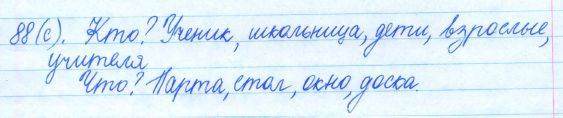 88(с). Кто? Ученик, школьница, дети, взрослые,
учителя
Что? Парта, стол, окно, доска